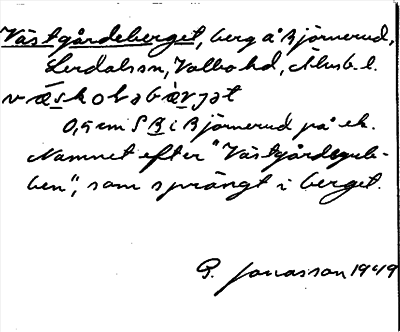 Västgårdeberget, berg å Björnerud,
Lerdalssn, Valbo hd, Älvsb. l.
0,5 cm S B i Björnerud på ek.
Namnet efter "Västgårdsgub-
ben", som sprängt i berget.
G. Jonasson 1949